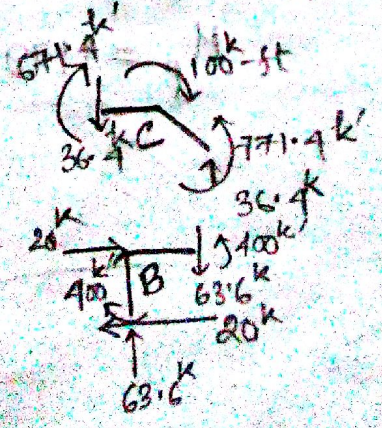 671.4k'
100k-ft
36.4k
C
771.4k'
36.4k
20k
400k'
400k'
B
63.6k
20k
63.6k